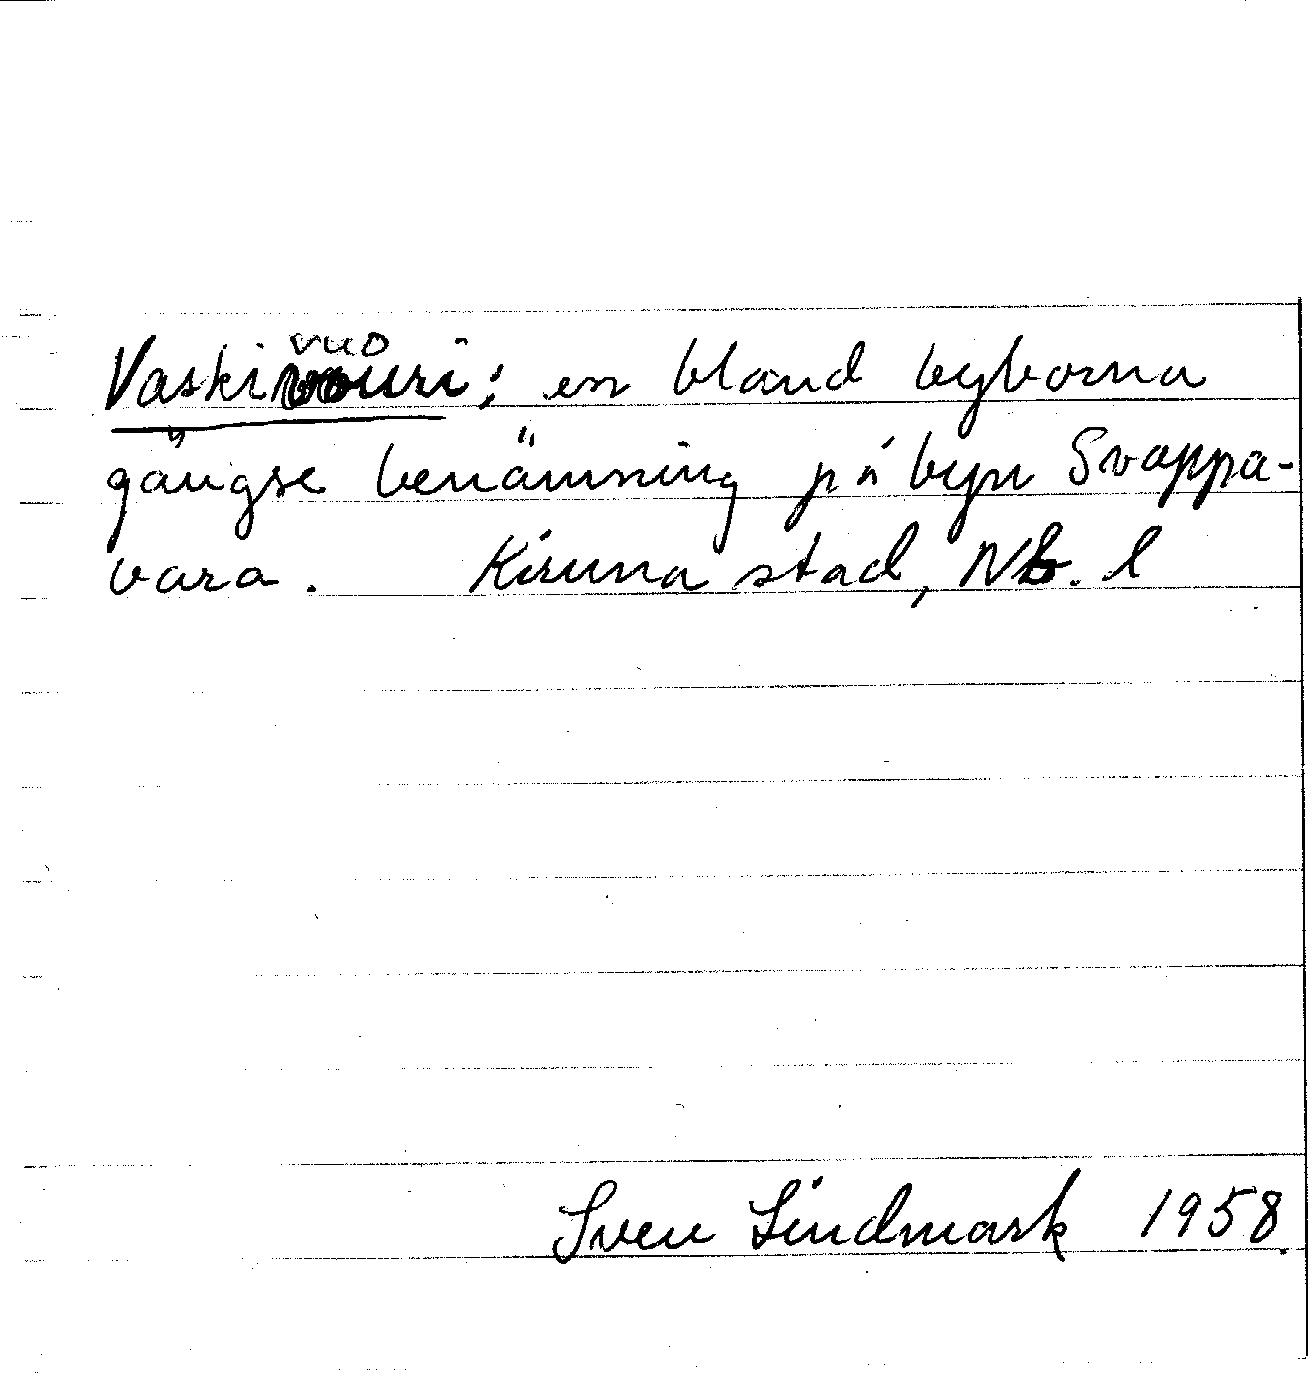 Vaskivuori: en bland byborna
gängse benämning på byn Svappa-
vara. Kiruna stad, Nb. l
Sven Lindmark 1958.